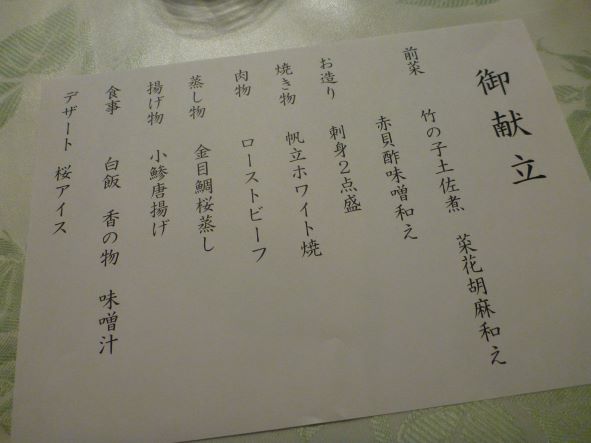 御献立
前菜 竹の子土佐煮 菜花胡麻和え
赤貝酢味噌和え
お造り 刺身2点盛
焼き物 帆立ホワイト焼
肉物 ローストビーフ
蒸し物 金目鯛桜蒸し
揚げ物 小鯵唐揚げ
食事 白飯 香の物 味噌汁
デザート 桜アイス